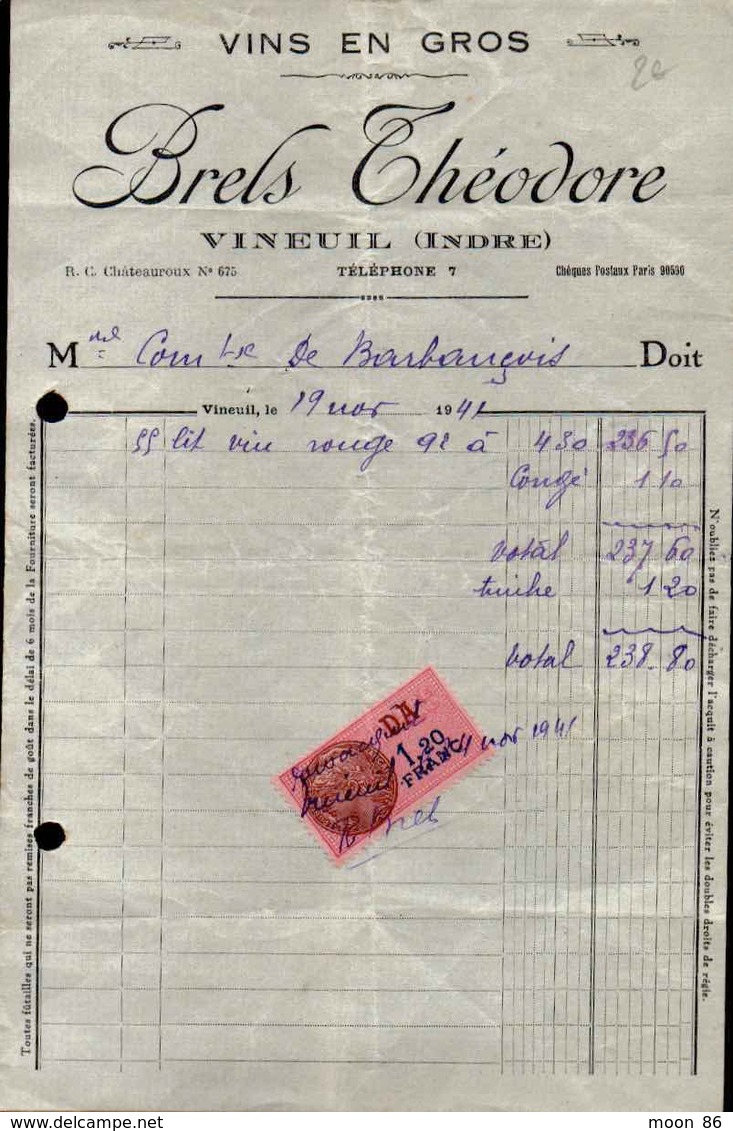 VINS EN GROS
20
Brels Théodore
VINEUIL (INDRE)
R. C. Châteauroux N° 675 TÉLÉPHONE 7 Chèques Postaux Paris 90590
Mme Comtsse De Barbançois Doit
Vineuil, le 19 nov 1941
55 lit vin rouge 9° à 430 236 50
Congé 1 10
total 237 60
timbre 1 20
total 238 80
DA
1,20
FRANC
nov 1941
Vineuil
Brels
Toutes fûtailles qui ne seront pas remises franches de goût dans le délai de 6 mois de la Fourniture seront facturées.
N'oubliez pas de faire décharger l'acquit à caution pour éviter les doubles droits de régie.
moon 86